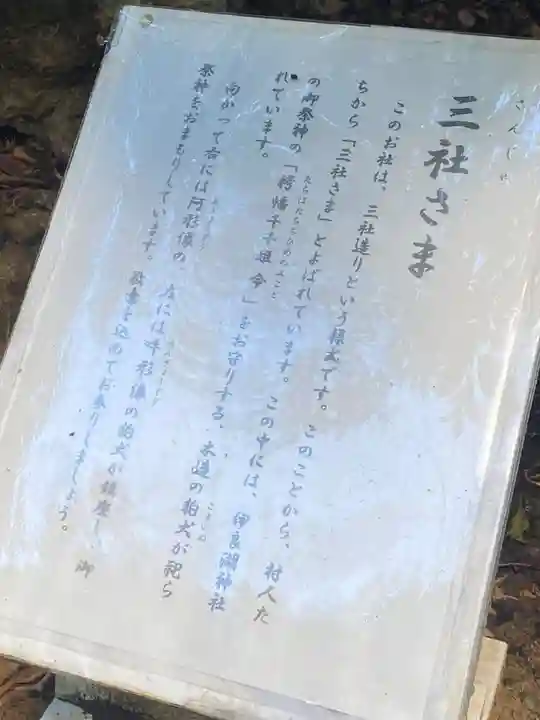 さんじゃ
三社さま
このお社は、三社造りという様式です。このことから、村人た
ちから「三社さま」とよばれています。この中には、伊良湖神社
の御祭神の「栲幡千千姫命」をお守りする、木造の狛犬が祀ら
れています。
向かって右には阿形像の、左には吽形像の狛犬が鎮座し、御
祭神をおまもりしています。敬意を込めてお参りしましょう。